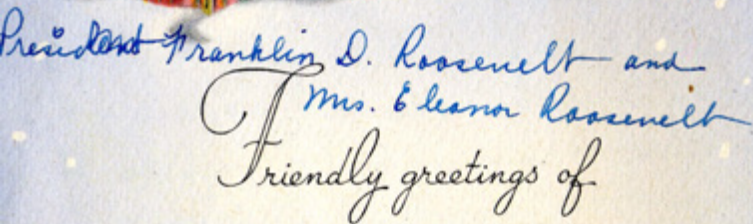 President Franklin D. Roosevelt and
Mrs. Eleanor Roosevelt
Friendly greetings of